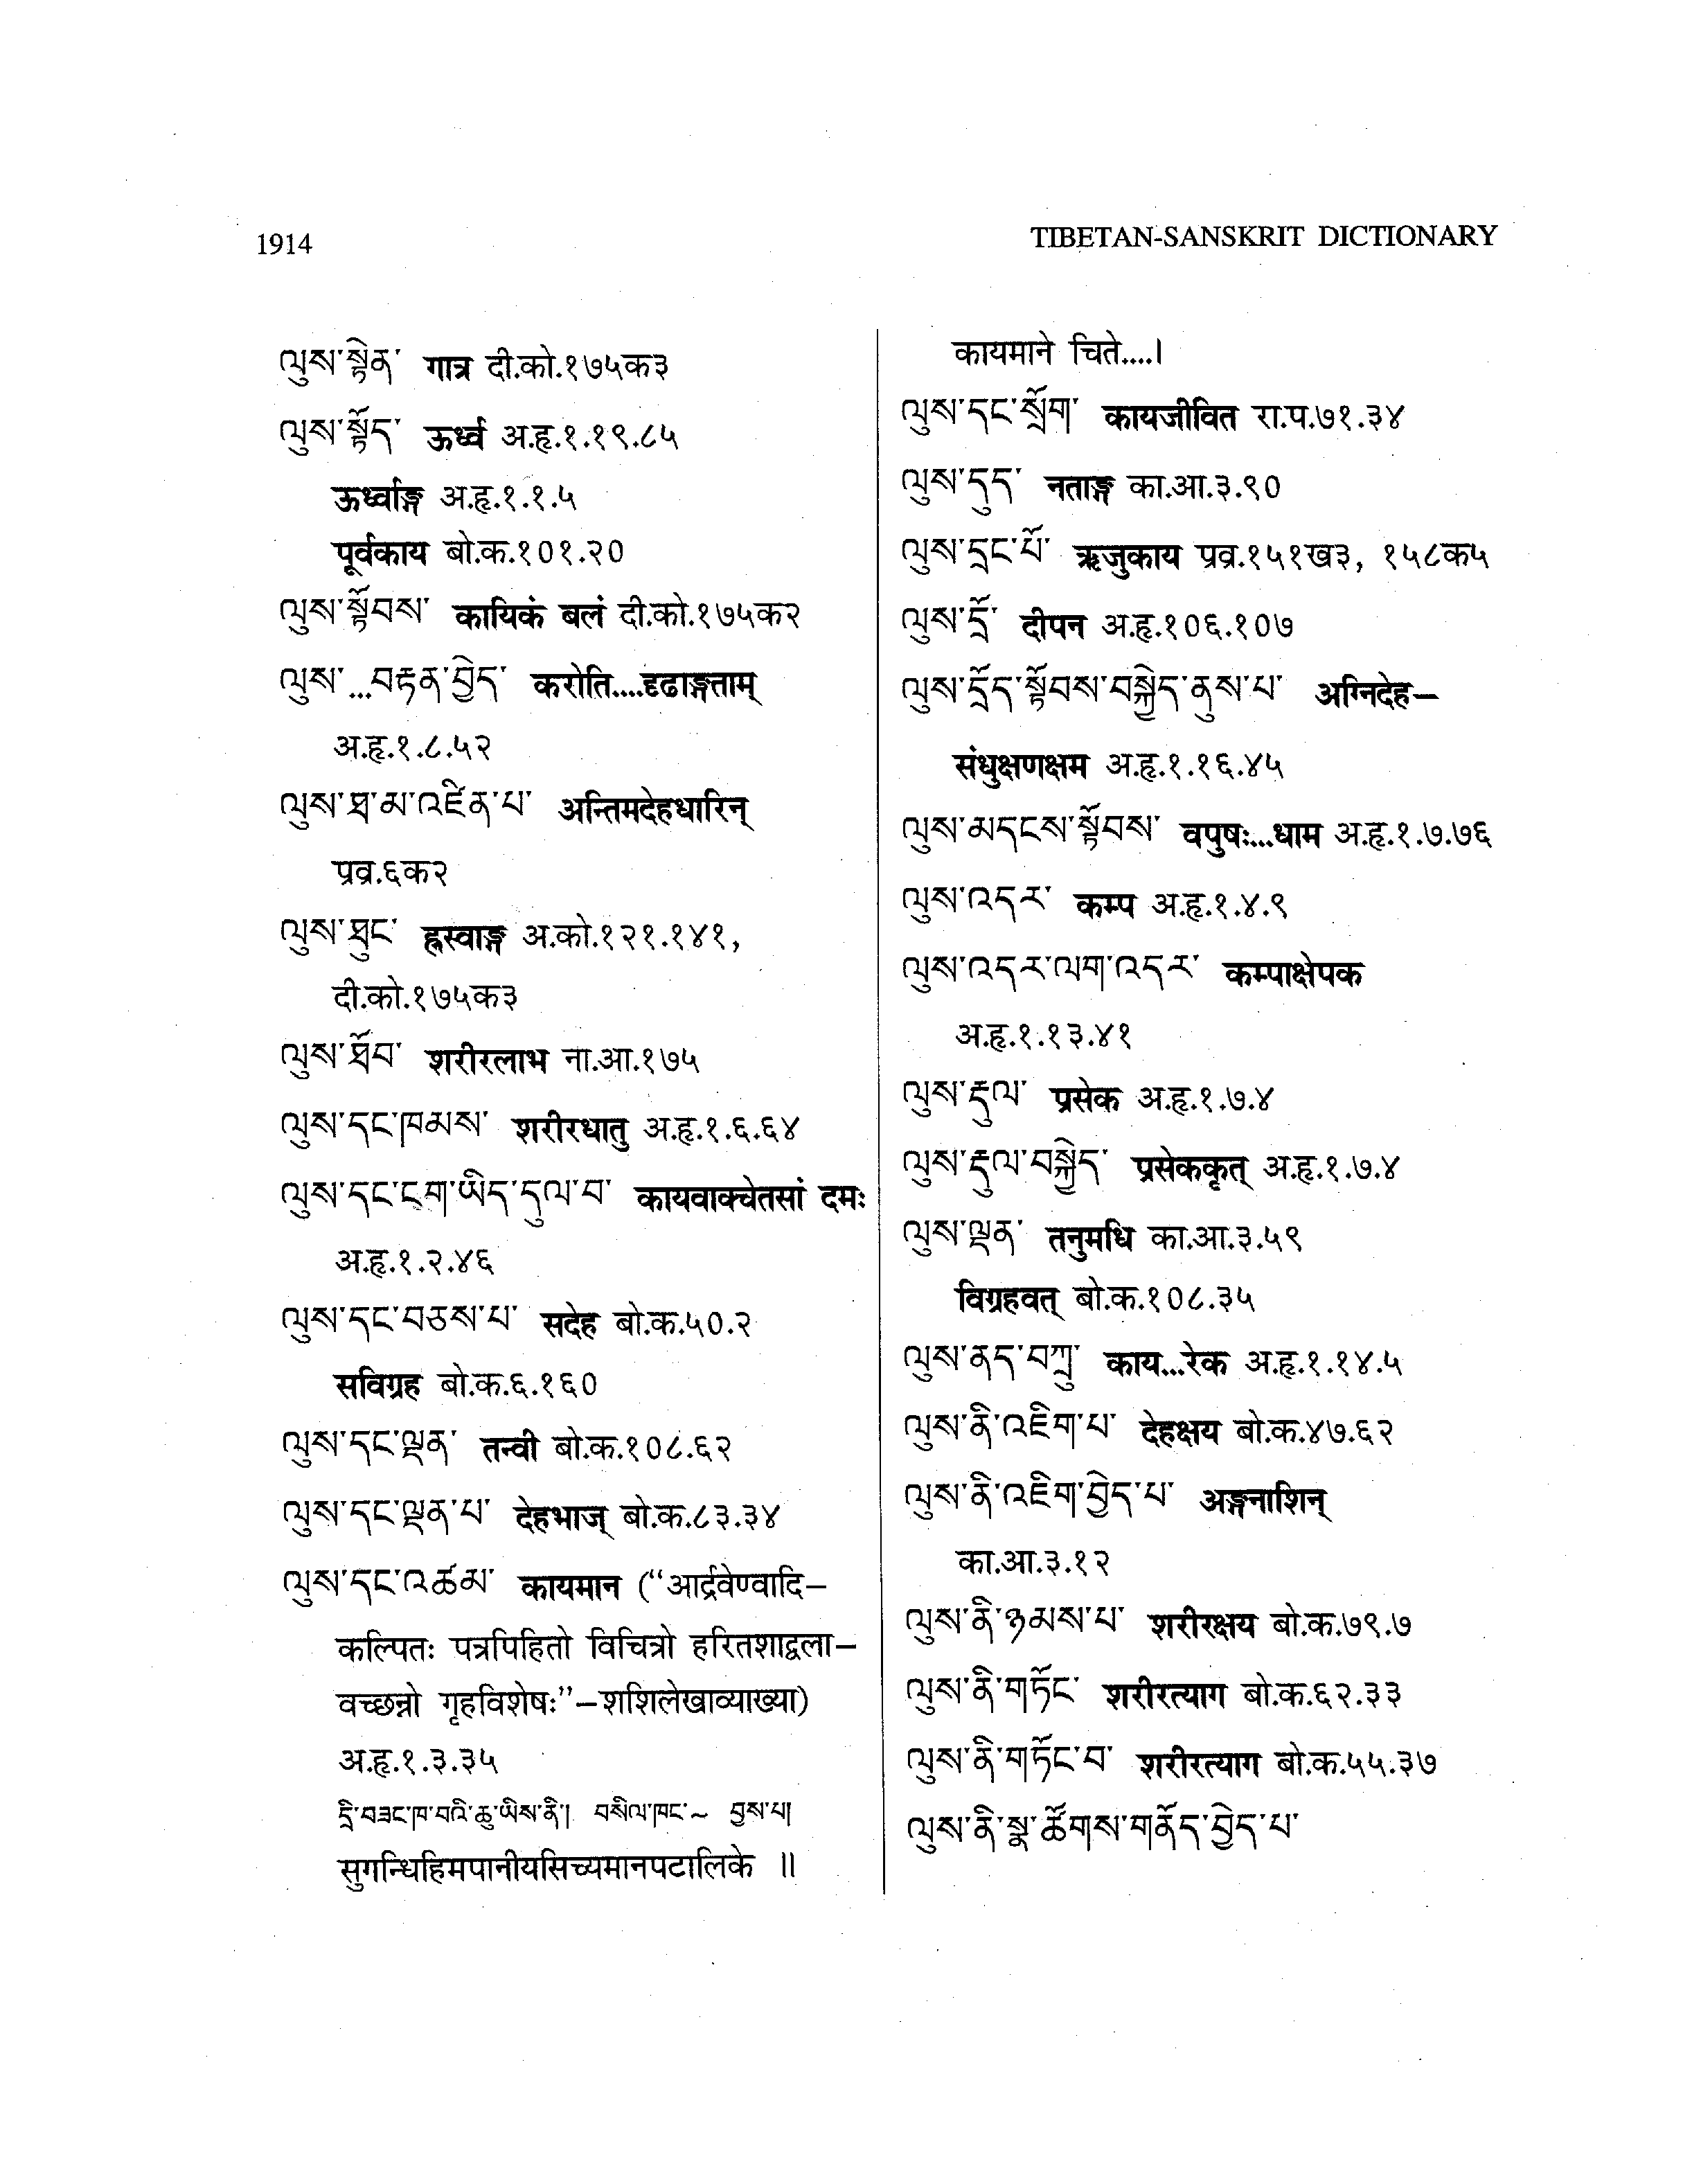 1914
TIBETAN-SANSKRIT DICTIONARY
ལུས་སྟེན་ गात्र दी.को.१७५क३
ལུས་སྟོད་ ऊर्ध्व अ.हृ.१.१९.८५
ऊर्ध्वाङ्ग अ.हृ.१.१.५
पूर्वकाय बो.क.१०१.२०
ལུས་སྟོབས་ कायिकं बलं दी.को.१७५क२
ལུས་...བརྟན་བྱེད་ करोति....दृढाङ्गताम्
अ.हृ.१.८.५२
ལུས་ཐ་མ་འཛིན་པ་ अन्तिमदेहधारिन्
प्रव्र.६क२
ལུས་ཐུང་ ह्रस्वाङ्ग अ.को.१२१.१४१,
दी.को.१७५क३
ལུས་ཐོབ་ शरीरलाभ ना.आ.१७५
ལུས་དང་ཁམས་ शरीरधातु अ.हृ.१.६.६४
ལུས་དང་ངག་ཡིད་དུལ་བ་ कायवाक्चेतसां दमः
अ.हृ.१.२.४६
ལུས་དང་བཅས་པ་ सदेह बो.क.५०.२
सविग्रह बो.क.६.१६०
ལུས་དང་ལྡན་ तन्वी बो.क.१०८.६२
ལུས་དང་ལྡན་པ་ देहभाज् बो.क.८३.३४
ལུས་དང་འཚམ་ कायमान (“आर्द्रवेण्वादि–
कल्पितः पत्रपिहितो विचित्रो हरितशाद्वला–
वच्छन्नो गृहविशेषः”–शशिलेखाव्याख्या)
अ.हृ.१.३.३५
དྲི་བཟང་ཁ་བའི་ཆུ་ཡིས་ནི། བསིལ་ཁང་~ བྱས་པ།
सुगन्धिहिमपानीयसिच्यमानपटालिके ॥
कायमाने चिते....।
ལུས་དང་སྲོག་ कायजीवित रा.प.७१.३४
ལུས་དུད་ नताङ्ग का.आ.३.९०
ལུས་དྲང་པོ་ ऋजुकाय प्रव्र.१५१ख३, १५८क५
ལུས་དྲོ་ दीपन अ.हृ.१०६.१०७
ལུས་དྲོད་སྟོབས་བསྐྱེད་ནུས་པ་ अग्निदेह–
संधुक्षणक्षम अ.हृ.१.१६.४५
ལུས་མདངས་སྟོབས་ वपुषः...धाम अ.हृ.१.७.७६
ལུས་འདར་ कम्प अ.हृ.१.४.९
ལུས་འདར་ལག་འདར་ कम्पाक्षेपक
अ.हृ.१.१३.४१
ལུས་རྡུལ་ प्रसेक अ.हृ.१.७.४
ལུས་རྡུལ་བསྐྱེད་ प्रसेककृत् अ.हृ.१.७.४
ལུས་ལྡན་ तनुमधि का.आ.३.५९
विग्रहवत् बो.क.१०८.३५
ལུས་ནད་བཀྲུ་ काय...रेक अ.हृ.१.१४.५
ལུས་ནི་འཇིག་པ་ देहक्षय बो.क.४७.६२
ལུས་ནི་འཇིག་བྱེད་པ་ अङ्गनाशिन्
का.आ.३.१२
ལུས་ནི་ཉམས་པ་ शरीरक्षय बो.क.७९.७
ལུས་ནི་གཏོང་ शरीरत्याग बो.क.६२.३३
ལུས་ནི་གཏོང་བ་ शरीरत्याग बो.क.५५.३७
ལུས་ནི་སྣ་ཚོགས་གནོད་བྱེད་པ་